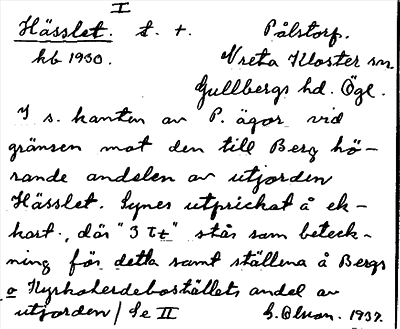 I
Hässlet. t. +. Pålstorp.
hb 1930. Vreta Kloster sn.
Gullbergs hd. Ögl.
I s. kanten av P. ägor vid
gränsen mot den till Berg hö-
rande andelen av utjorden
Hässlet. Synes utprickat å ek-
kart., där "3 Tt" står som beteck-
ning för detta samt ställena å Bergs
o Kyrkoherdeboställets andel av
utjorden / Se II G. Olson. 1937.